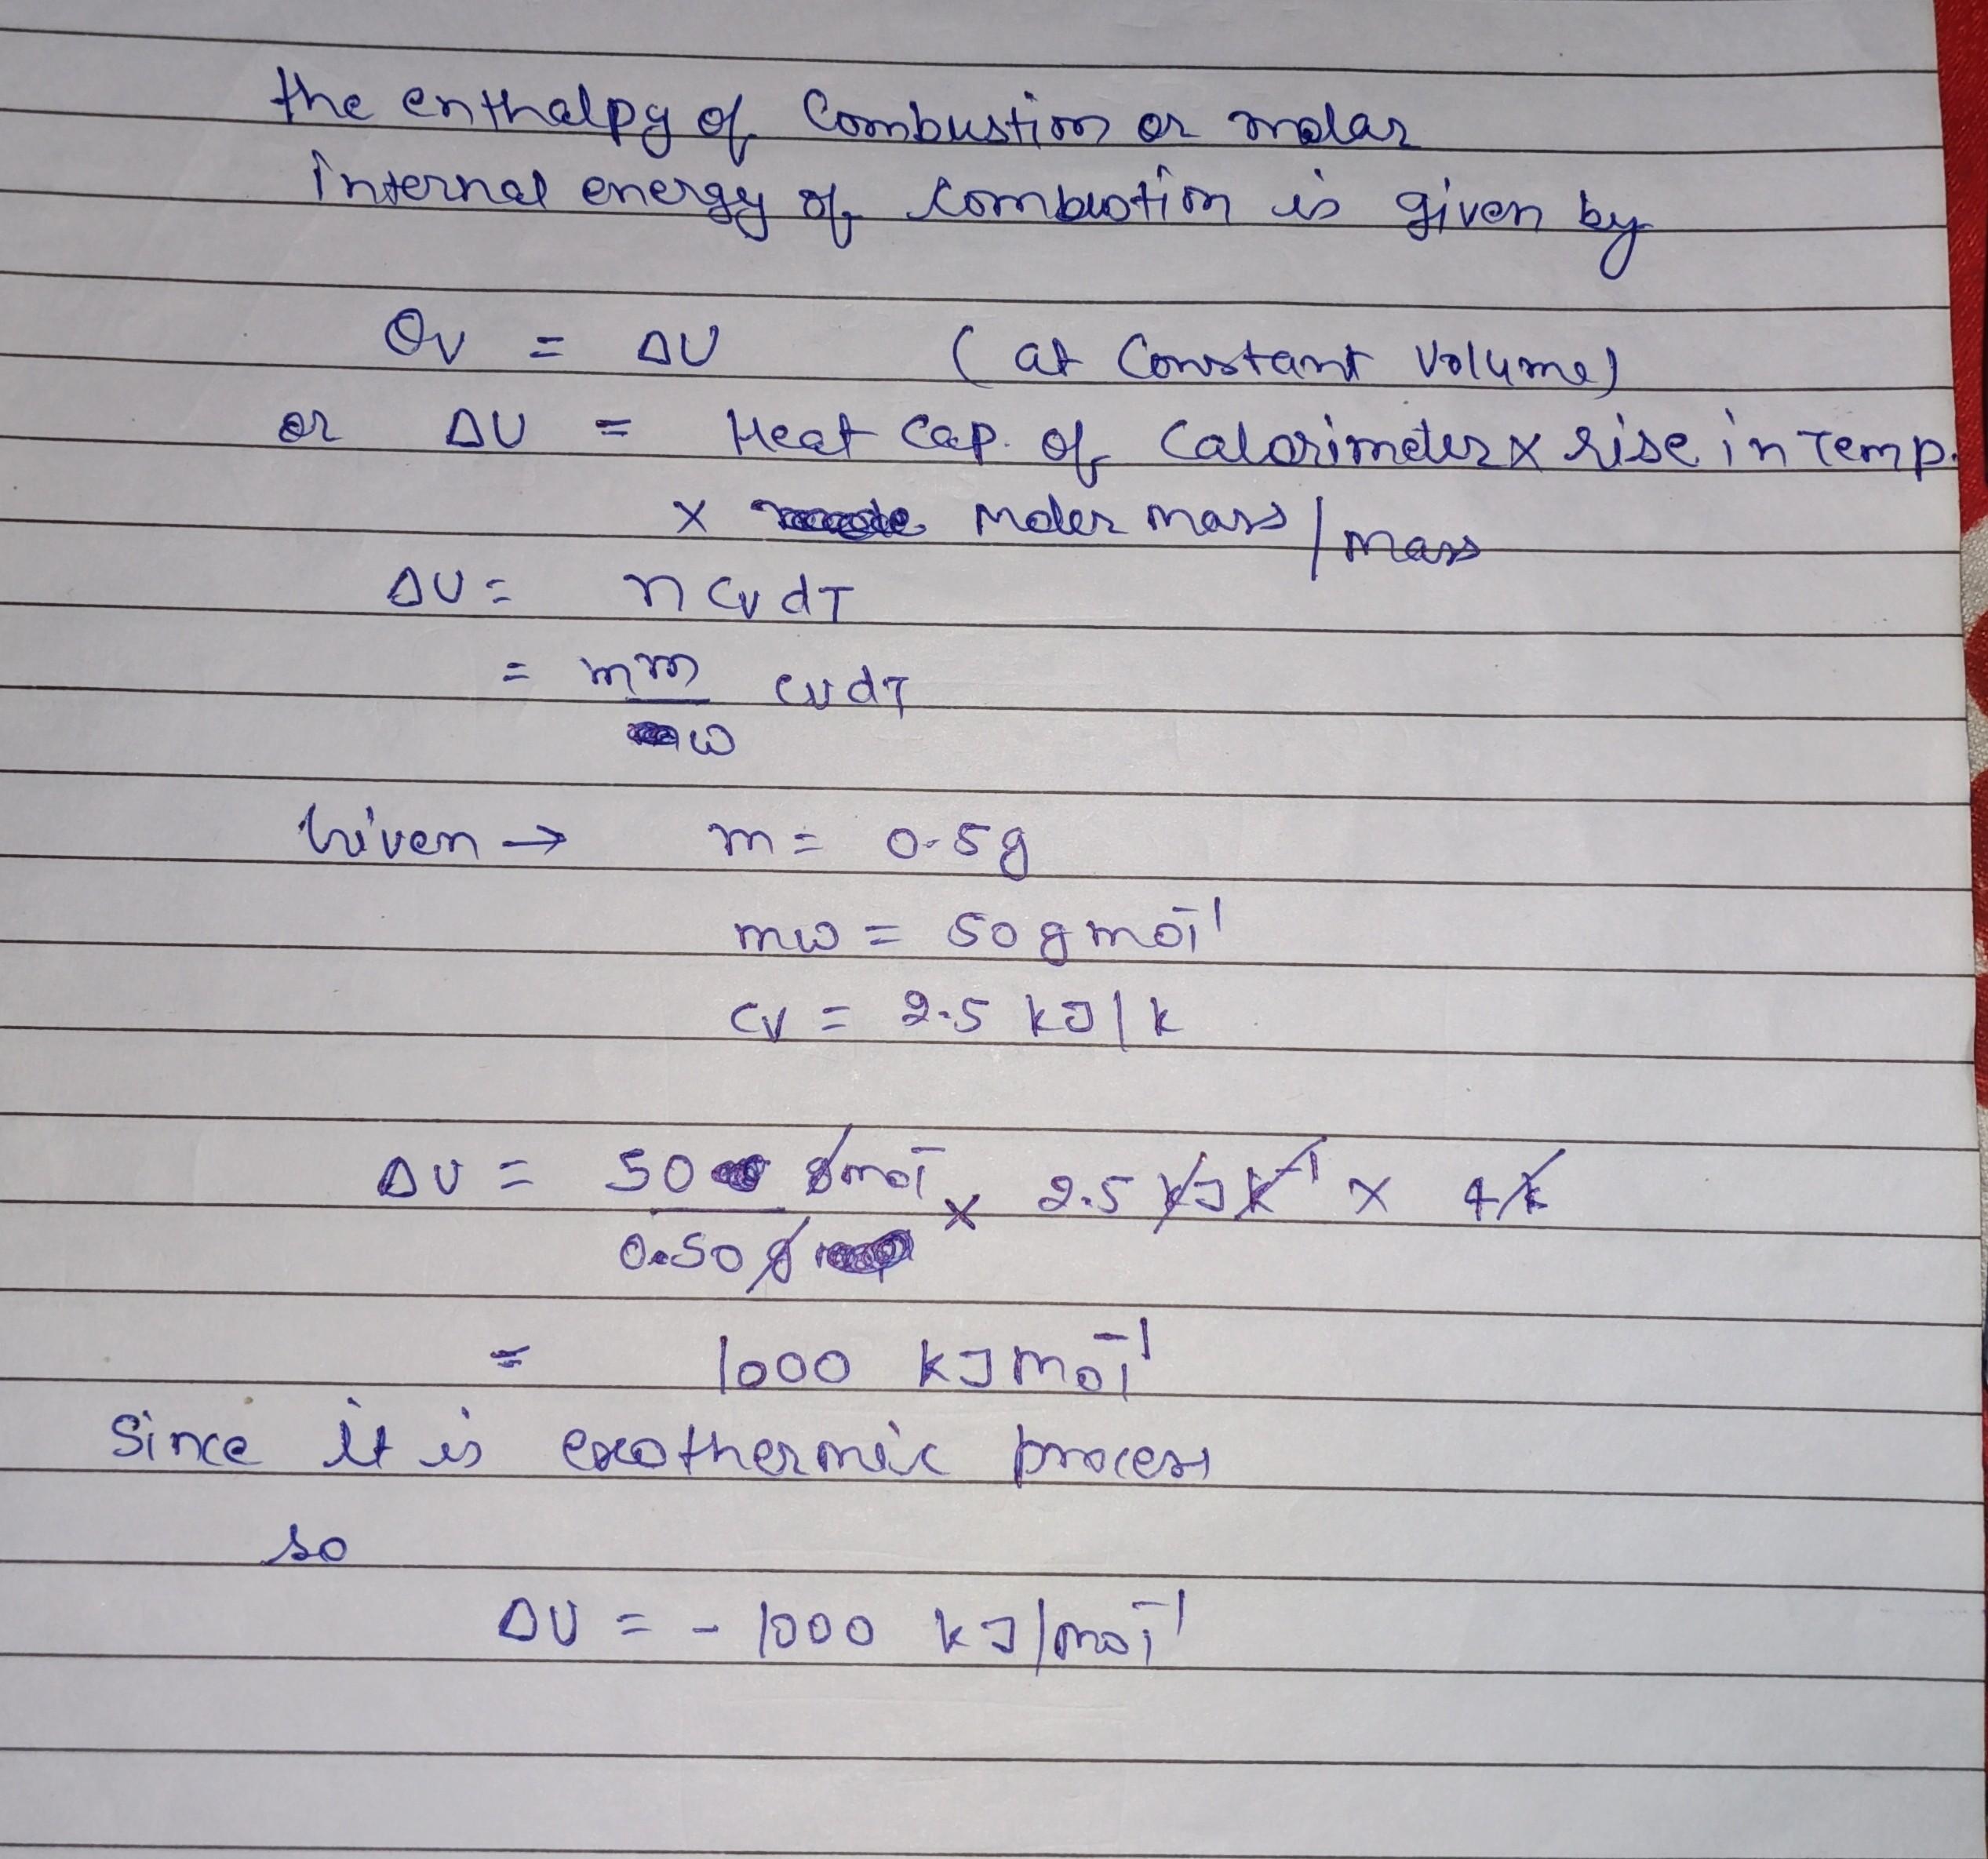 the enthalpy of Combustion or molar
internal energy of combustion is given by
Qv = ΔU (at Constant Volume)
or ΔU = Heat Cap. of Calorimeter x rise in Temp.
x moler mass / mass
ΔU = n Cv dT
= mm Cv dT
w
Given → m = 0.5g
mw = 50 g mol⁻¹
Cv = 2.5 kJ/k
ΔU = 50 g mol⁻ x 2.5 kJ k⁻¹ x 4k
0.50 g
= 1000 kJ mol⁻¹
Since it is exothermic process
so
ΔU = - 1000 kJ/mol⁻¹